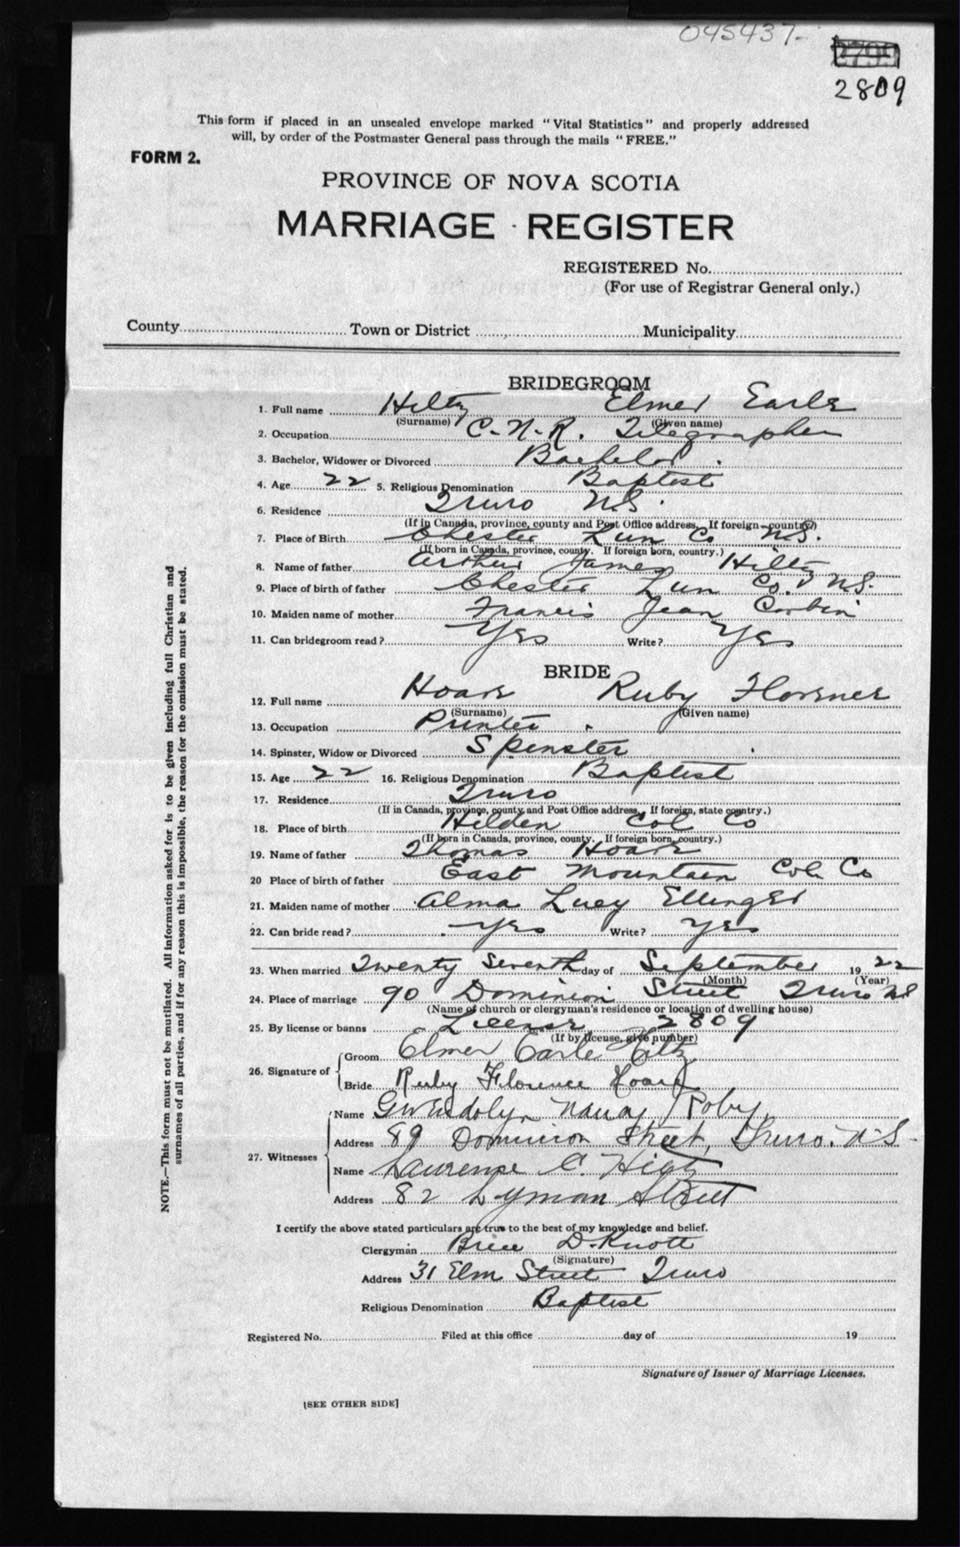 045437-
2809
This form if placed in an unsealed envelope marked "Vital Statistics" and properly addressed
will, by order of the Postmaster General pass through the mails "FREE."
FORM 2.
PROVINCE OF NOVA SCOTIA
MARRIAGE REGISTER
REGISTERED No.
(For use of Registrar General only.)
County Town or District Municipality
BRIDEGROOM
1. Full name Hiltz Elmer Earle
(Surname) (Given name)
2. Occupation C.N.R. Telegrapher
3. Bachelor, Widower or Divorced Bachelor
4. Age 22 5. Religious Denomination Baptist
6. Residence Truro N.S.
(If in Canada, province, county and Post Office address. If foreign country)
7. Place of Birth Chester Lun Co N.S.
(If born in Canada, province, county. If foreign born, country.)
8. Name of father Arthur James Hiltz
9. Place of birth of father Chester Lun Co. N.S.
10. Maiden name of mother Francis Jean Corbin
11. Can bridegroom read? Yes Write? Yes
BRIDE
12. Full name Hoare Ruby Florence
(Surname) (Given name)
13. Occupation Printer
14. Spinster, Widow or Divorced Spinster
15. Age 22 16. Religious Denomination Baptist
17. Residence Truro
(If in Canada, province, county and Post Office address, If foreign, state country.)
18. Place of birth Hilden Col Co
(If born in Canada, province, county. If foreign born, country.)
19. Name of father Thomas Hoare
20 Place of birth of father East Mountain Col. Co
21. Maiden name of mother Alma Lucy Ellinger
22. Can bride read? Yes Write? Yes
23. When married Twenty Seventh day of September 1922
(Month) (Year)
24. Place of marriage 90 Dominion Street Truro NS
(Name of church or clergyman's residence or location of dwelling house)
25. By license or banns License 2809
(If by license, give number)
26. Signature of Groom Elmer Earle Hiltz
Bride Ruby Florence Hoare
27. Witnesses Name Gwendolyn Nancy Roby
Address 89 Dominion Street, Truro. N.S.
Name Laurence C. Hiltz
Address 82 Lyman Street
I certify the above stated particulars are true to the best of my knowledge and belief.
Clergyman Brice D. Knott
(Signature)
Address 31 Elm Street Truro
Religious Denomination Baptist
Registered No. Filed at this office day of 19
Signature of Issuer of Marriage Licenses.
[SEE OTHER SIDE]
NOTE.—This form must not be mutilated. All information asked for is to be given including full Christian and
surnames of all parties, and if for any reason this is impossible, the reason for the omission must be stated.